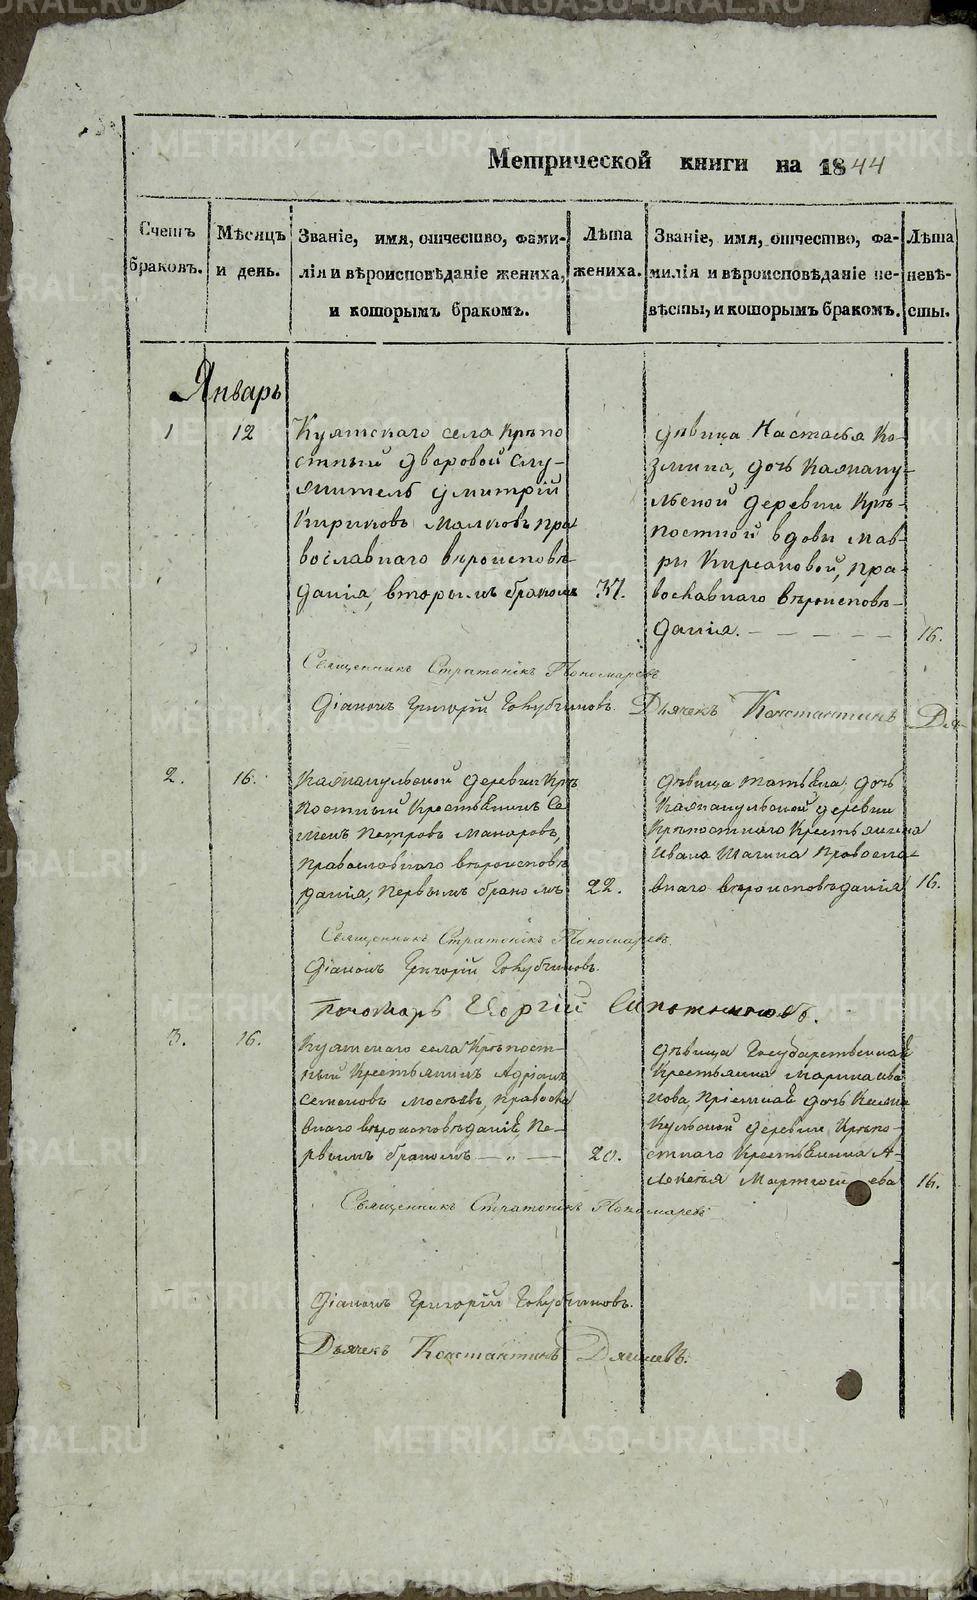 Метрической книги на 1844
Счетъ браковъ.
Мѣсяцъ и день.
Званіе, имя, отчество, фами-
лія и вѣроисповѣданіе жениха,
и которымъ бракомъ.
Лѣта жениха.
Званіе, имя, отчество, фа-
милія и вѣроисповѣданіе не-
вѣсты, и которымъ бракомъ.
Лѣта невѣ-
сты.
Январь
1
12
Куяшскаго села крѣпо
стный дворовой слу-
житель Димитрій
Кириковъ Малковъ пра
вославнаго вѣроисповѣ-
данія, вторымъ бракомъ
37.
дѣвица Настасья Ко-
змина, дочь Каяпаку-
льской деревни крѣ-
постной вдовы Мав-
ры Кирсановой, пра-
вославнаго вѣроисповѣ-
данія.
16.
Священникъ Стратоникъ Пономаревъ
Діаконъ Григорій Голубчиковъ. Дьячекъ Константинъ Дя
2.
16.
деревни крѣ
постный крестьянинъ Се
менъ Петровъ Макаровъ,
православнаго вѣроисповѣ
данія, первымъ бракомъ
22.
дѣвица Татьяна, дочь
деревни
крѣпостнаго крестьянина
Ивана Шагина правосла-
внаго вѣроисповѣданія
16.
Священникъ Стратоникъ Пономаревъ.
Діаконъ Григорій Голубчиковъ.
Пономарь Георгій
3.
16.
Куяшскаго села крѣпост-
ный крестьянинъ Адріанъ
Семеновъ правосла
внаго вѣроисповѣданія пе-
рвымъ бракомъ — „ —
20.
дѣвица Государственная
крестьянка Марина Ива
нова, пріемная дочь
деревни крѣпо-
стнаго крестьянина А-
лексѣя
16.
Священникъ Стратоникъ Пономаревъ
Діаконъ Григорій Голубчиковъ.
Дьячекъ Константинъ Дягилевъ.
METRIKI.GASO-URAL.RU